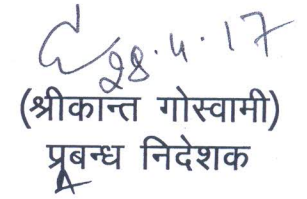 28.4.17
(श्रीकान्त गोस्वामी)
प्रबन्ध निदेशक